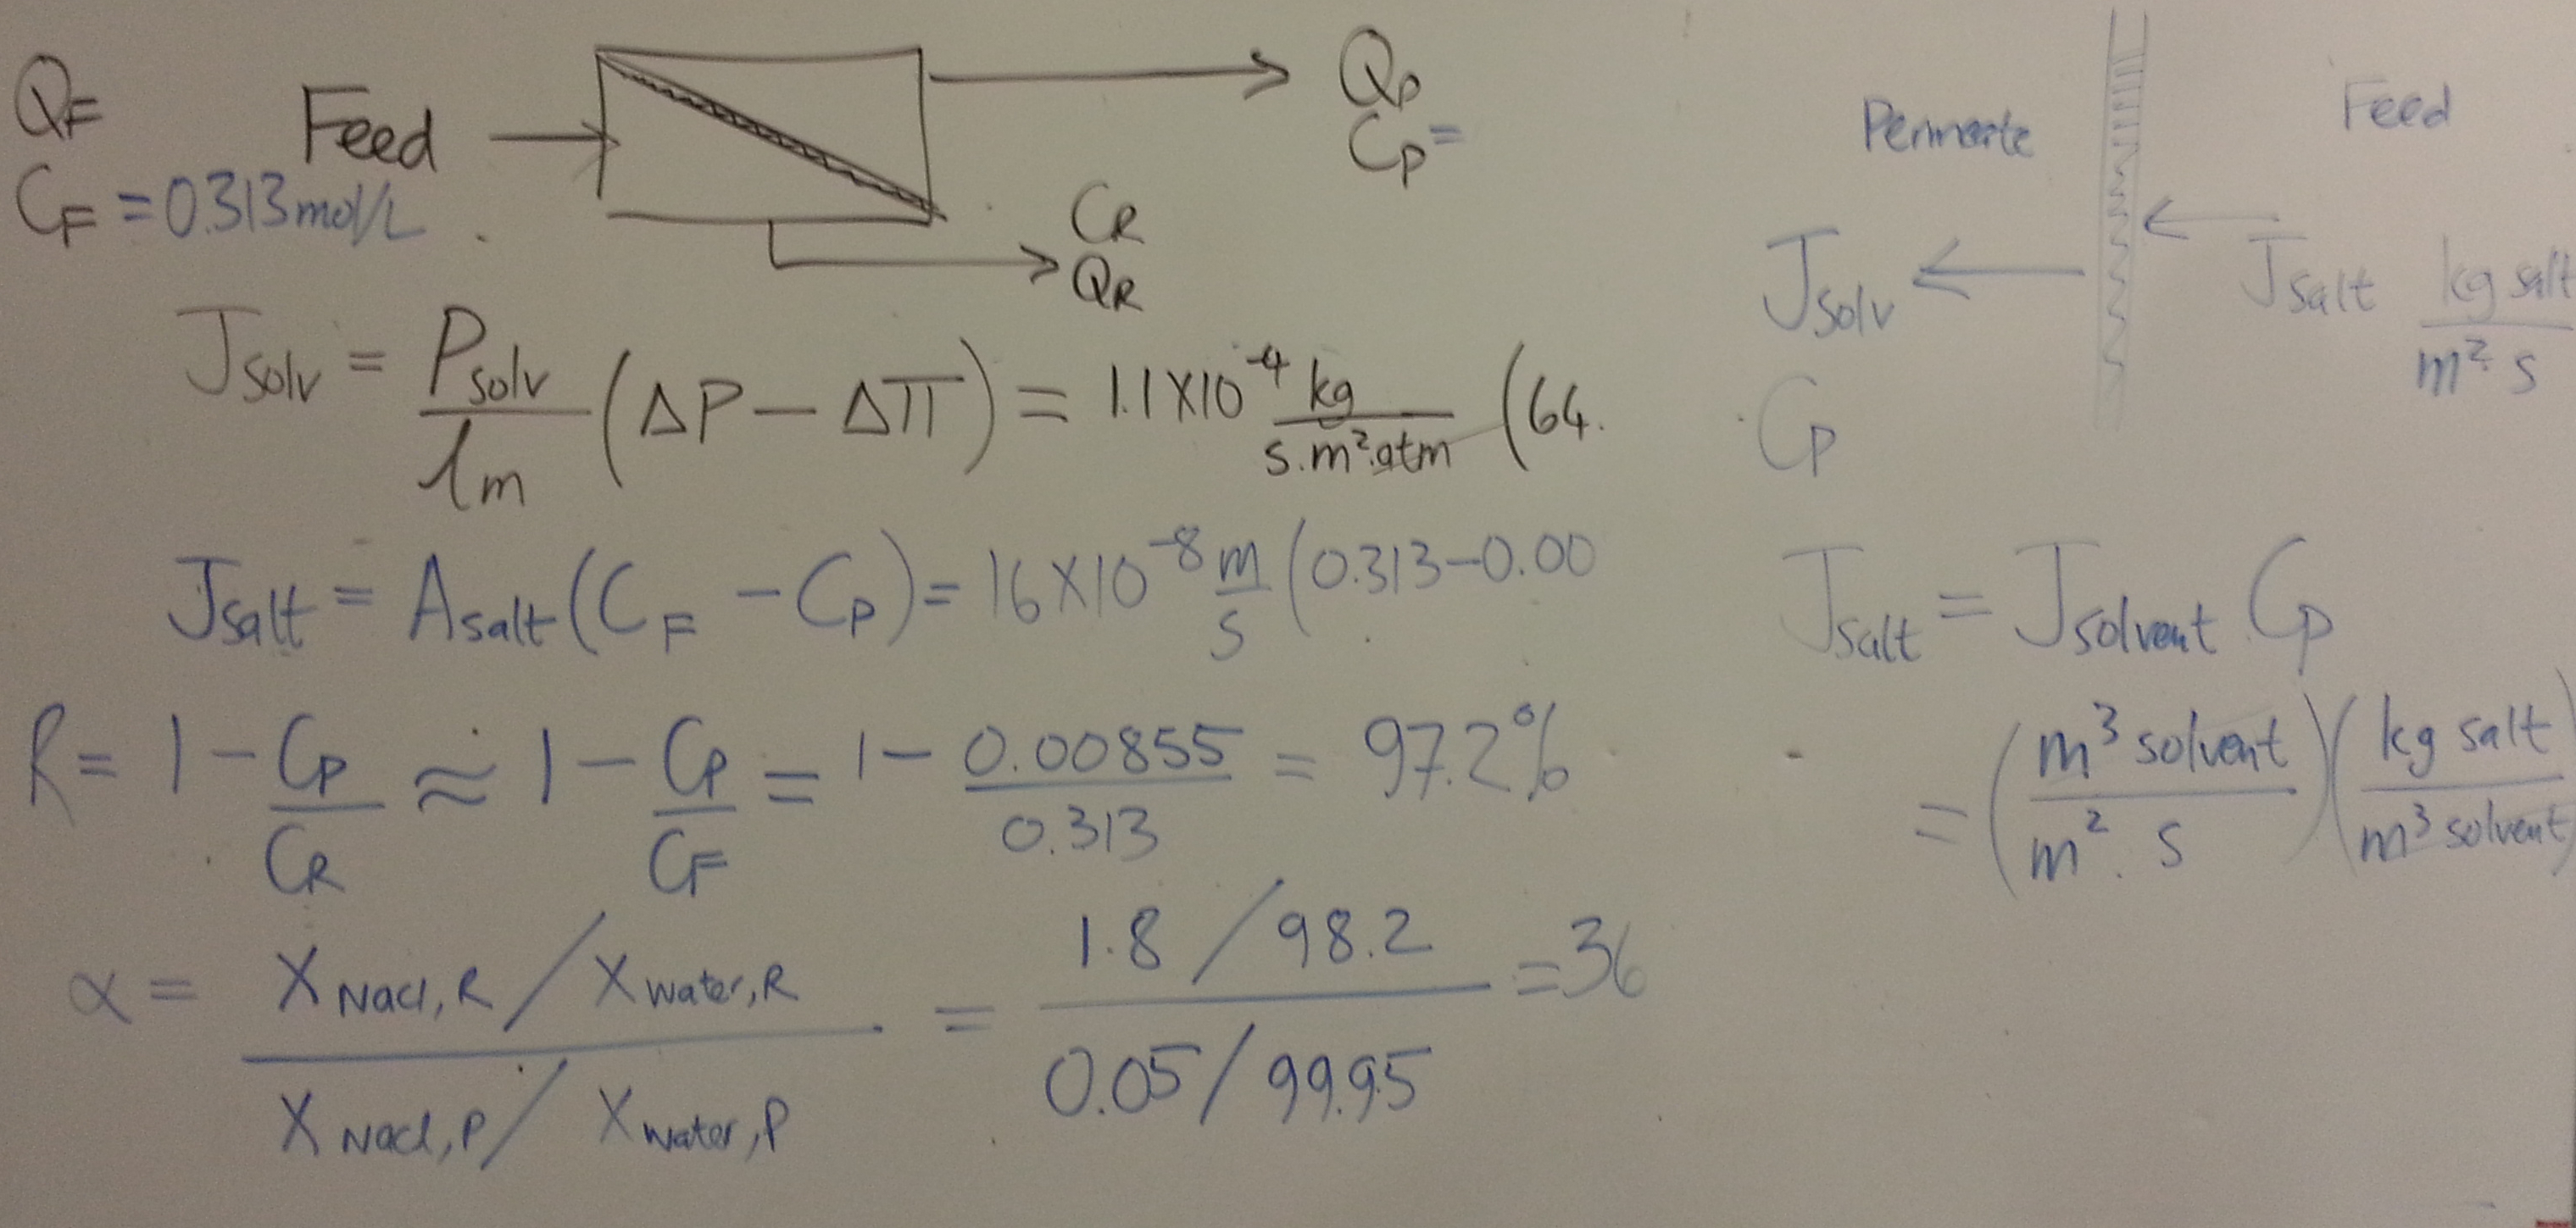 Q_F
C_F = 0.313 mol/L
Feed
Q_P
C_P =
C_R
Q_R
J_solv = P_solv / l_m (ΔP − Δπ) = 1.1×10^-4 kg / s.m².atm (64.
J_salt = A_salt (C_F − C_P) = 16×10^-8 m/s (0.313−0.00
R = 1 − C_P / C_R ≈ 1 − C_P / C_F = 1 − 0.00855 / 0.313 = 97.2%
α = (X_NaCl,R / X_water,R) / (X_NaCl,P / X_water,P) = (1.8 / 98.2) / (0.05 / 99.95) = 36
Permeate
Feed
J_solv
J_salt kg salt / m² s
C_P
J_salt = J_solvent C_P
= (m³ solvent / m² . s) (kg salt / m³ solvent)